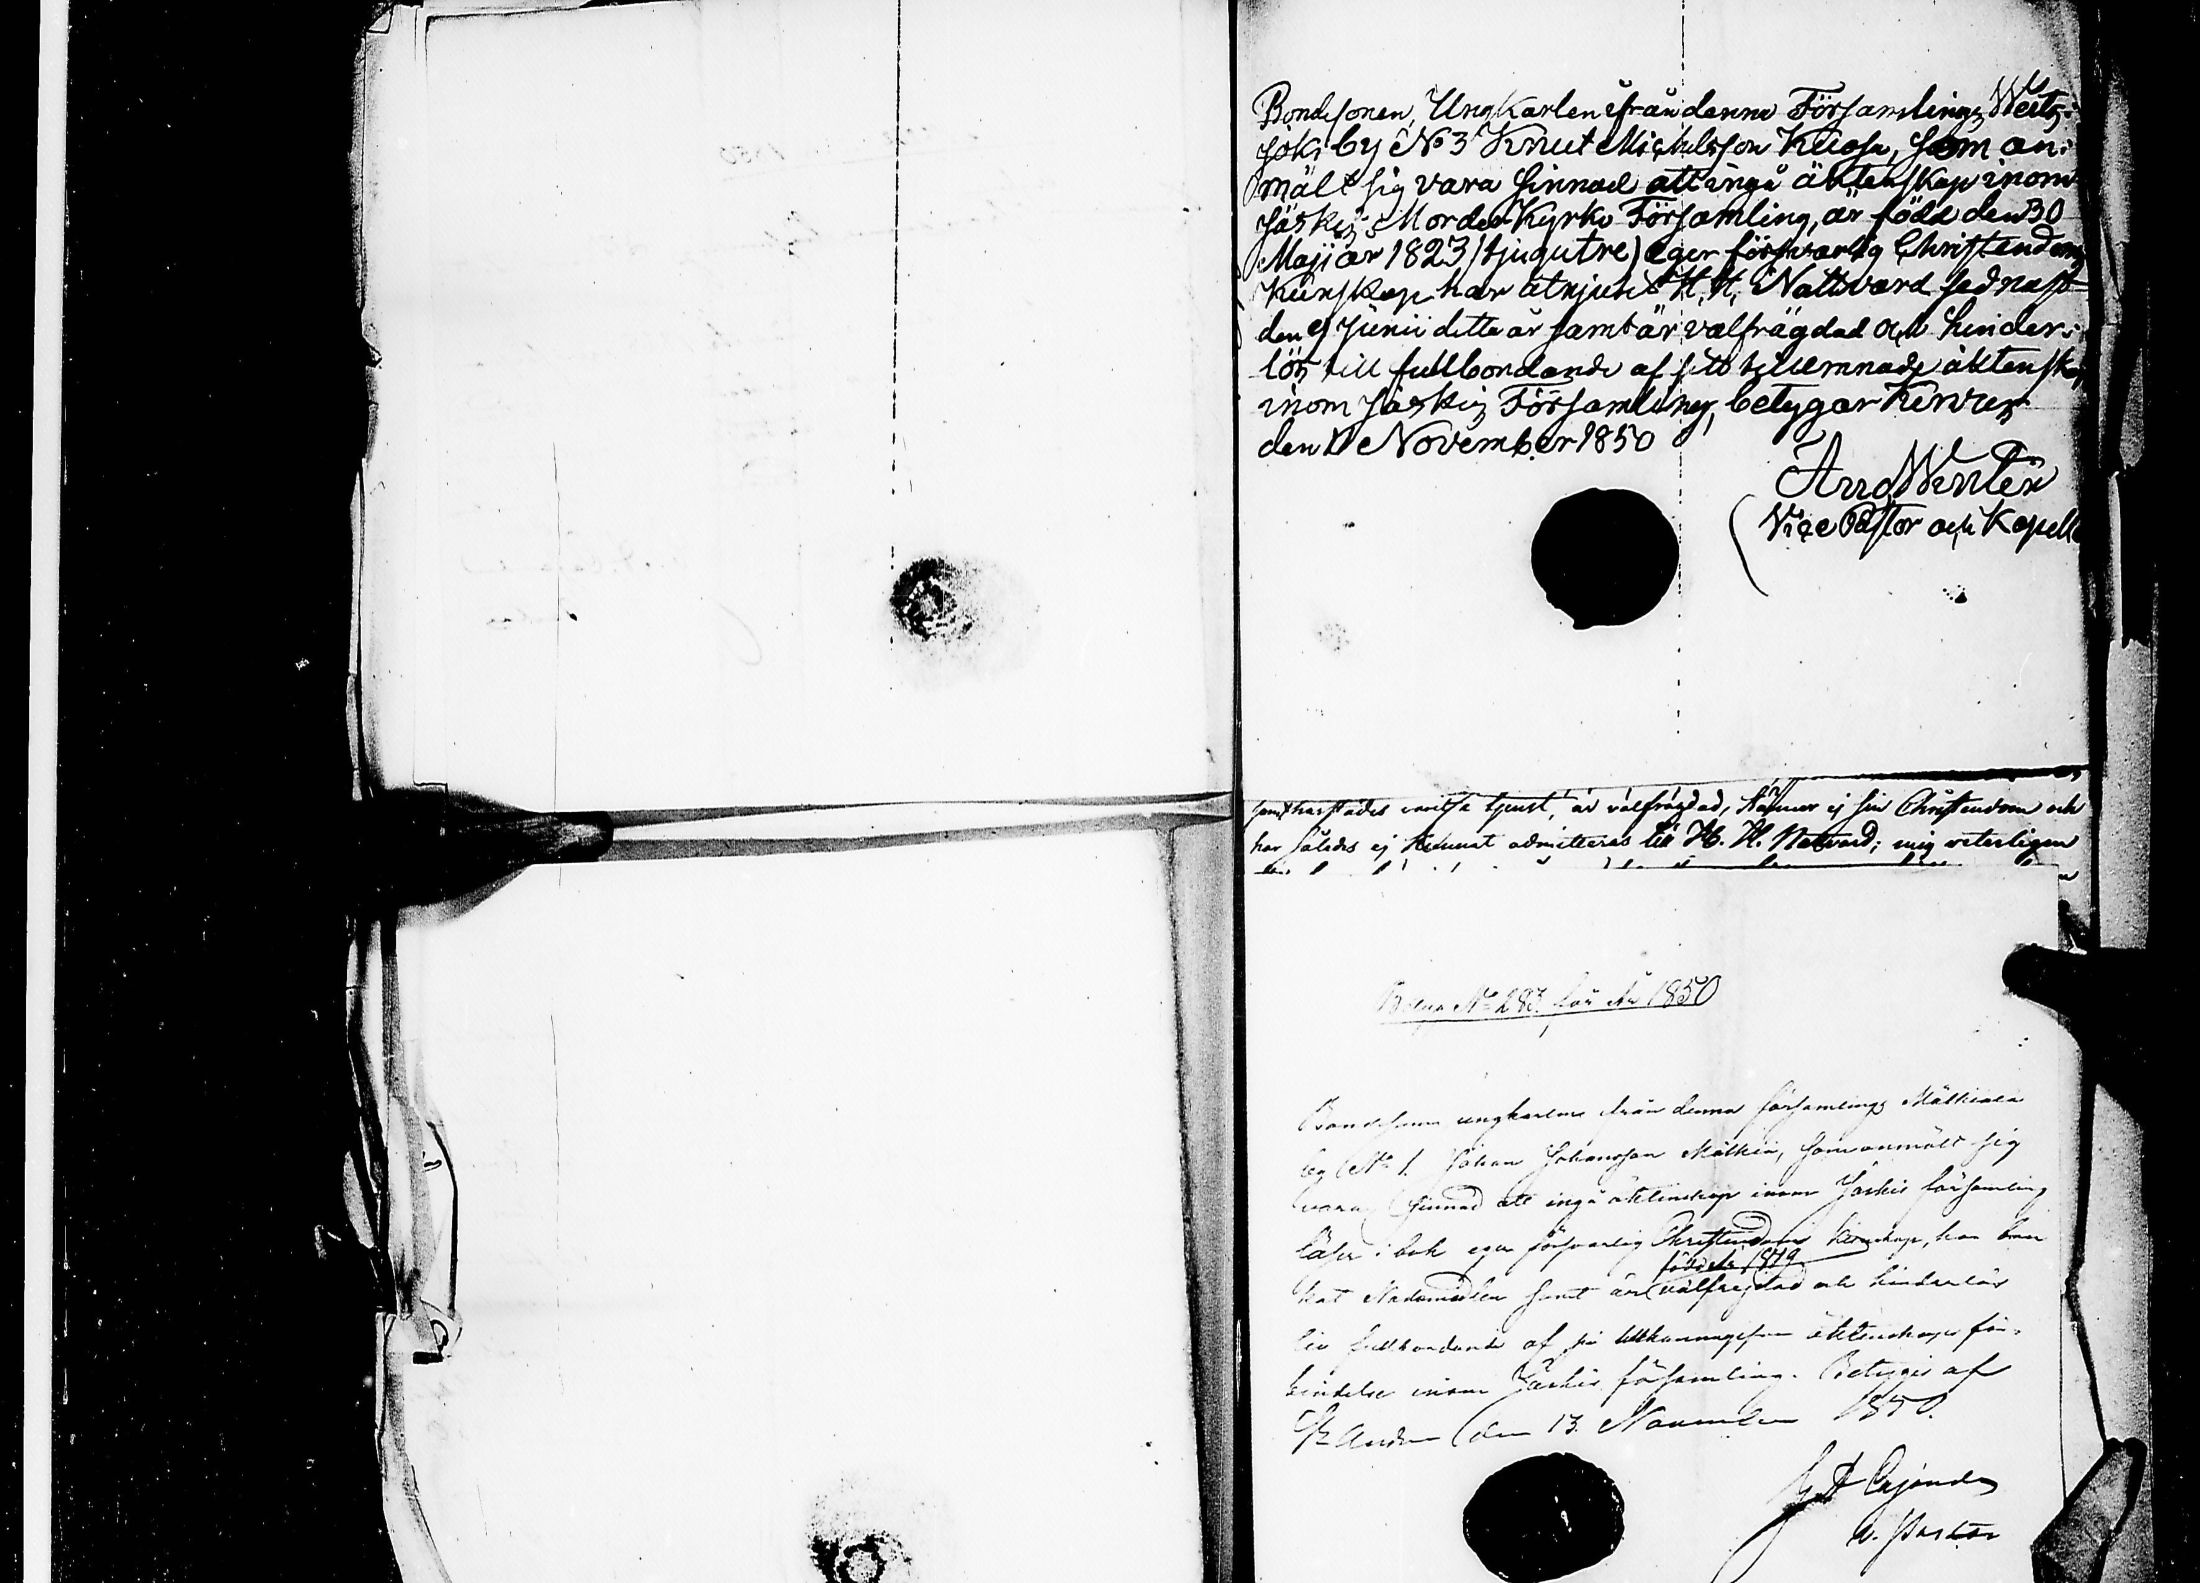 Bondesonen, Ungkarlen ifrån denna Församlings Weitz-
joki by No 3 Knut Michelsson Kuosa, som an-
mält sig vara sinnad att ingå äktenskap inom
Jäskis Moder Kyrko Församling, är född den 30
Maji år 1823 (tjugutre) eger försvarlig Christendoms
Kunskap har åtnjutit H. H. Nattvard sednast
den 9 Junii detta år samt är välfrägdad och hinders-
lös till fullbordande af sitt tillemnade äktenskap
inom Jäskis Församling, betygar Kirvus
den 11 November 1850
Vice Pastor och Kapell
samt härstädes i tjenst, är välfrägdad, känner ej sin Christendom och
har således ej kunnat admitteras till H. H. Nattvard; mig veterligen
Bilaga No 283 för År 1850
Bondesonen ungkarlen från denna församlings Mälkiälä
by No 1. Johan Johansson Mälkiä, som anmält sig
vara sinnad att ingå äktenskap inom Jäskis församling
läser i bok eger försvarlig Christendoms kunskap, har bru
född år 1819
kat Nådemedlen samt är välfrejdad och hinderlös
till fullbordande af sin tillkommnande äktenskaps för-
bindelse inom Jäskis församling. Betygas af
St Andræ den 13. November 1850.
v. Pastor